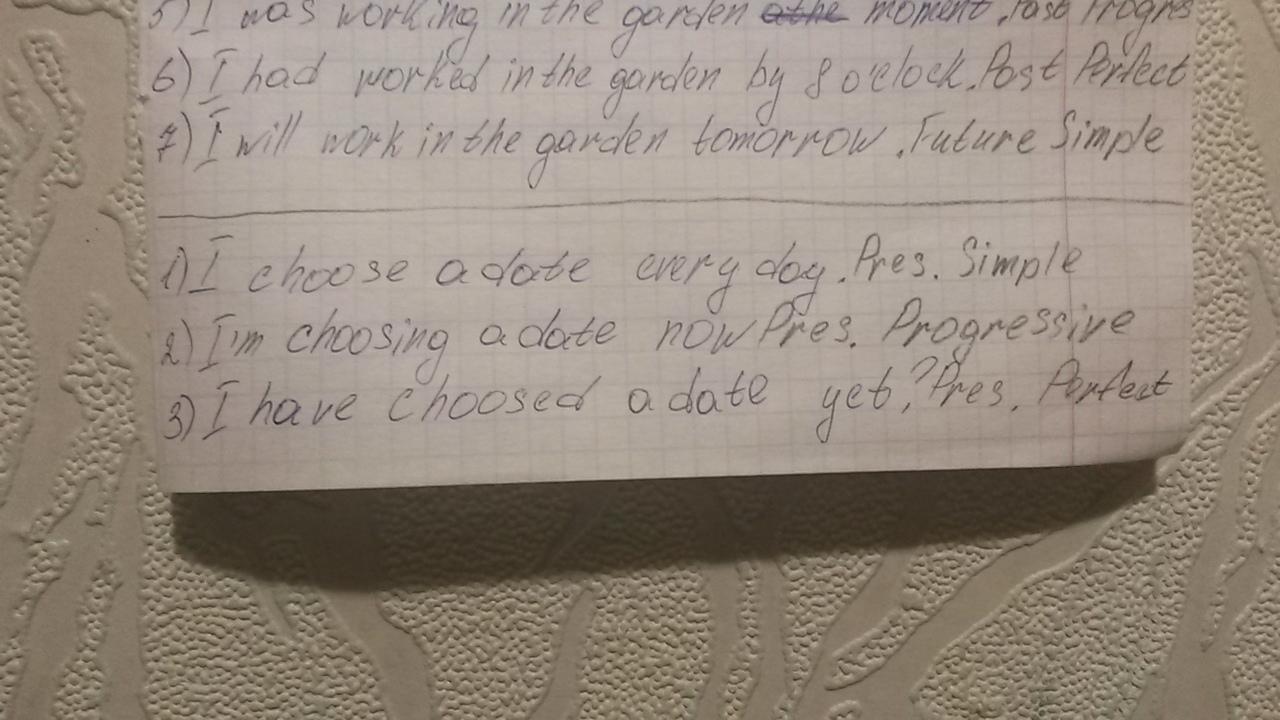 5) I was working in the garden at the moment. Past Progres
6) I had worked in the garden by 8 o'clock. Past Perfect
7) I will work in the garden tomorrow. Future Simple
1) I choose a date every day. Pres. Simple
2) I'm choosing a date now Pres. Progressive
3) I have choosed a date yet? Pres. Perfect